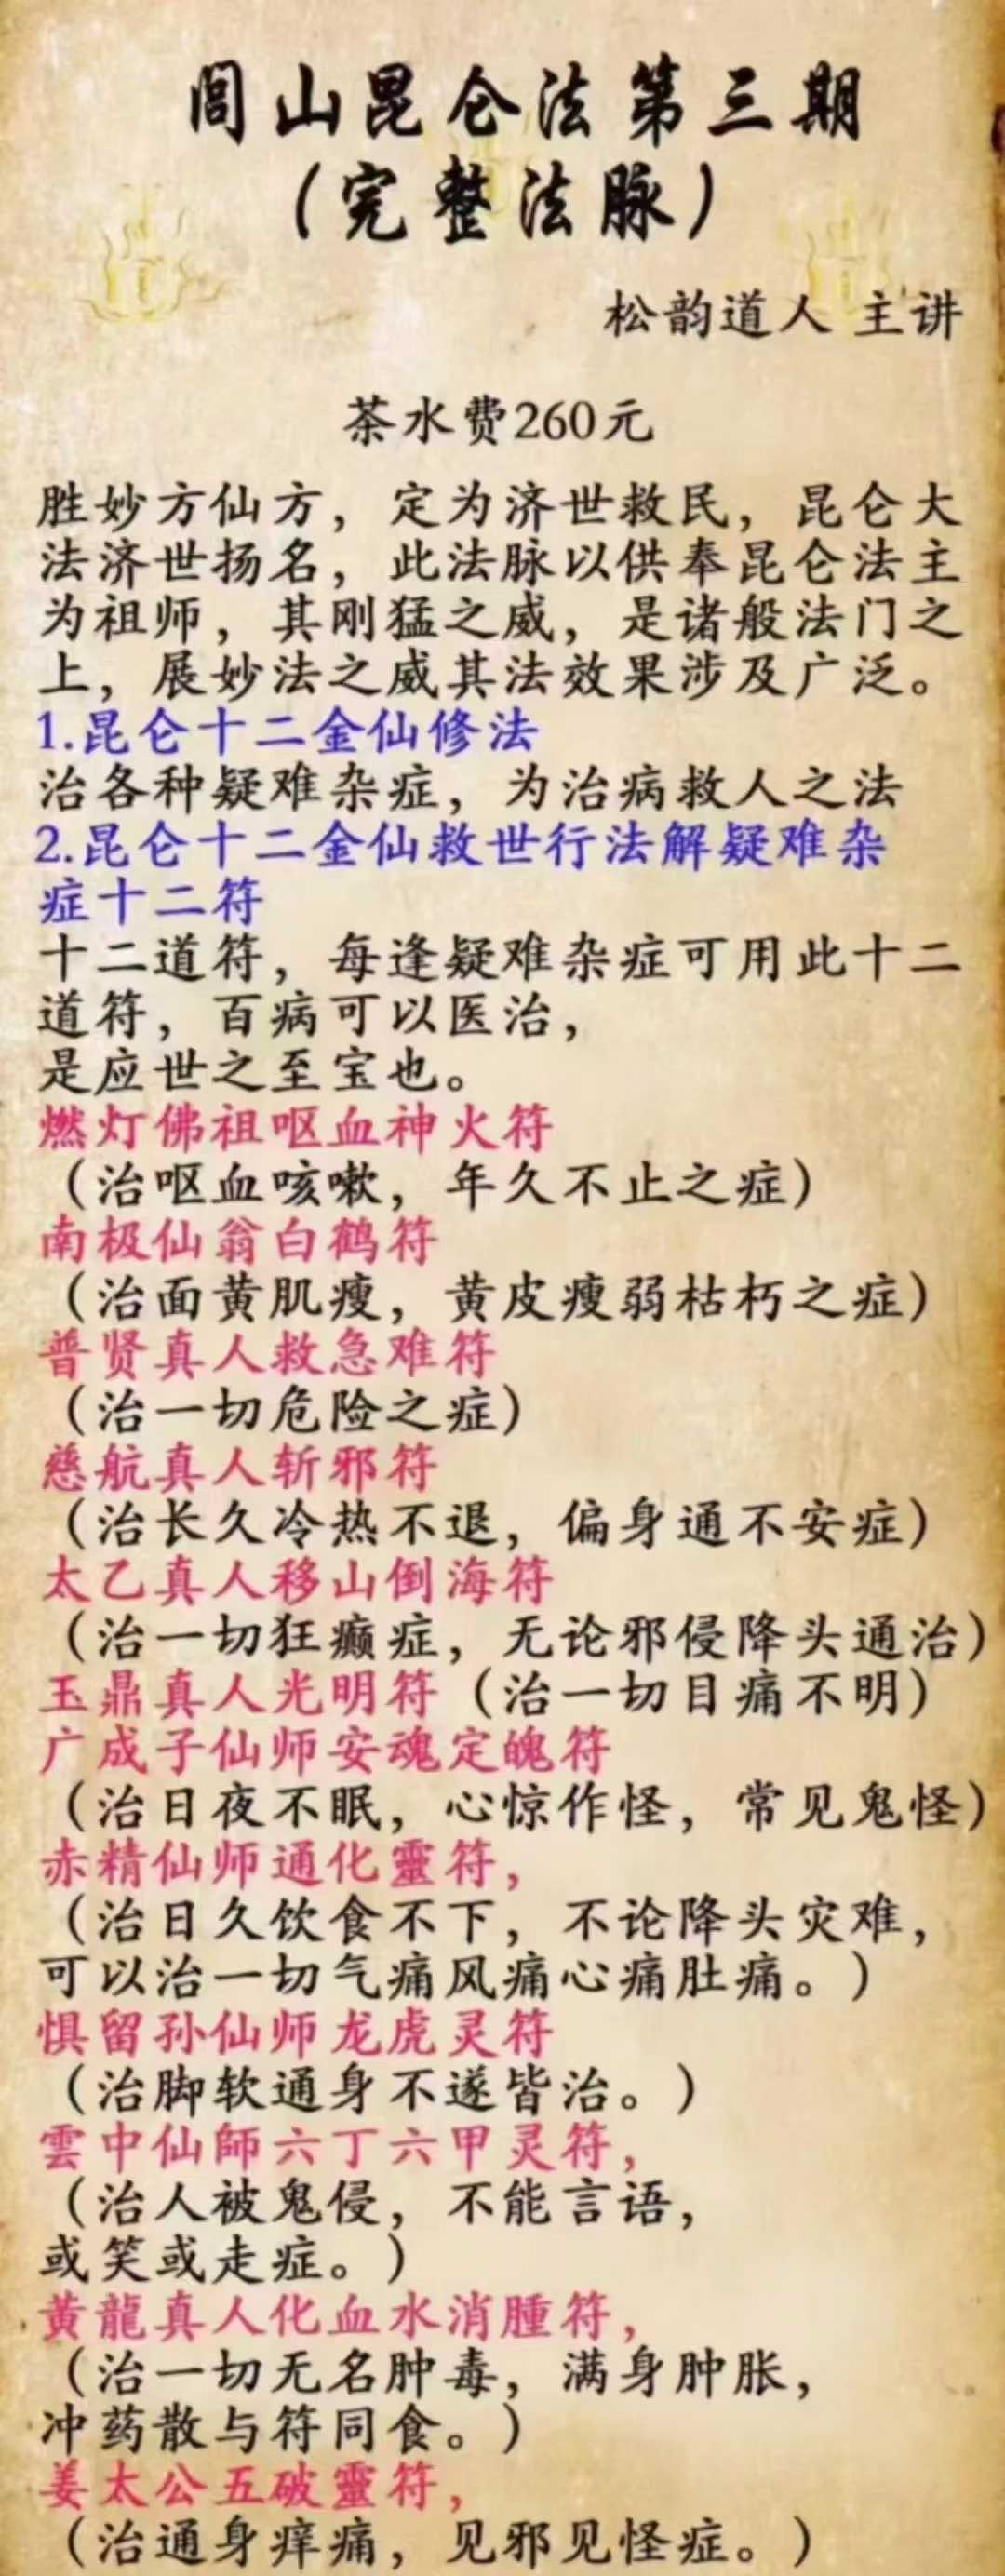 闾山昆仑法第三期
（完整法脉）
松韵道人 主讲
茶水费260元
胜妙方仙方，定为济世救民，昆仑大
法济世扬名，此法脉以供奉昆仑法主
为祖师，其刚猛之威，是诸般法门之
上，展妙法之威其法效果涉及广泛。
1.昆仑十二金仙修法
治各种疑难杂症，为治病救人之法
2.昆仑十二金仙救世行法解疑难杂
症十二符
十二道符，每逢疑难杂症可用此十二
道符，百病可以医治，
是应世之至宝也。
燃灯佛祖呕血神火符
（治呕血咳嗽，年久不止之症）
南极仙翁白鹤符
（治面黄肌瘦，黄皮瘦弱枯朽之症）
普贤真人救急难符
（治一切危险之症）
慈航真人斩邪符
（治长久冷热不退，偏身通不安症）
太乙真人移山倒海符
（治一切狂癫症，无论邪侵降头通治）
玉鼎真人光明符（治一切目痛不明）
广成子仙师安魂定魄符
（治日夜不眠，心惊作怪，常见鬼怪）
赤精仙师通化靈符，
（治日久饮食不下，不论降头灾难，
可以治一切气痛风痛心痛肚痛。）
惧留孙仙师龙虎灵符
（治脚软通身不遂皆治。）
雲中仙師六丁六甲灵符，
（治人被鬼侵，不能言语，
或笑或走症。）
黄龍真人化血水消腫符，
（治一切无名肿毒，满身肿胀，
冲药散与符同食。）
姜太公五破靈符，
（治通身痒痛，见邪见怪症。）